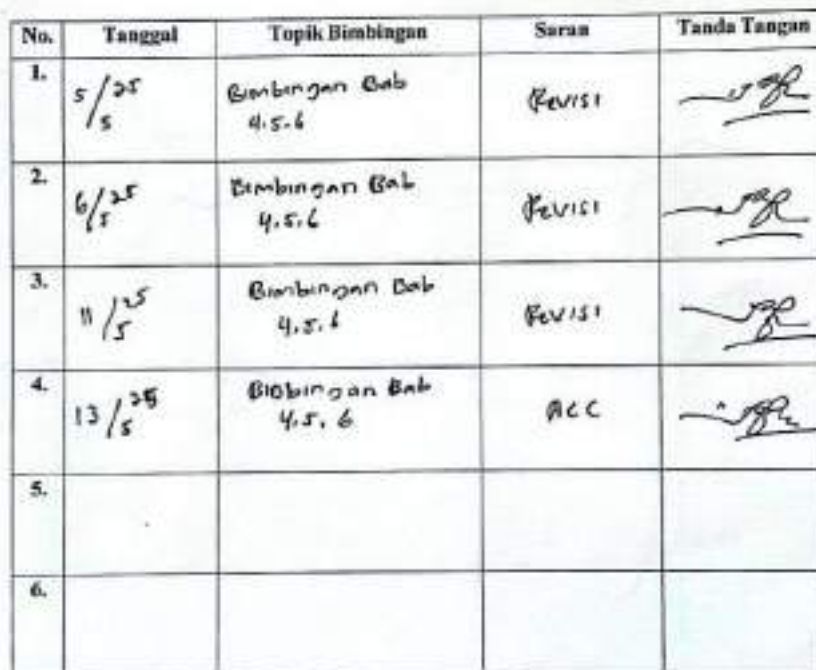 No. Tanggal Topik Bimbingan Saran Tanda Tangan
1. 5/5 25 Bimbingan Bab Revisi
4.5.6
2. 6/5 25 Bimbingan Bab Revisi
4.5.6
3. 11/5 25 Bimbingan Bab Revisi
4.5.6
4. 13/5 25 Bibbingan Bab ACC
4.5.6
5.
6.